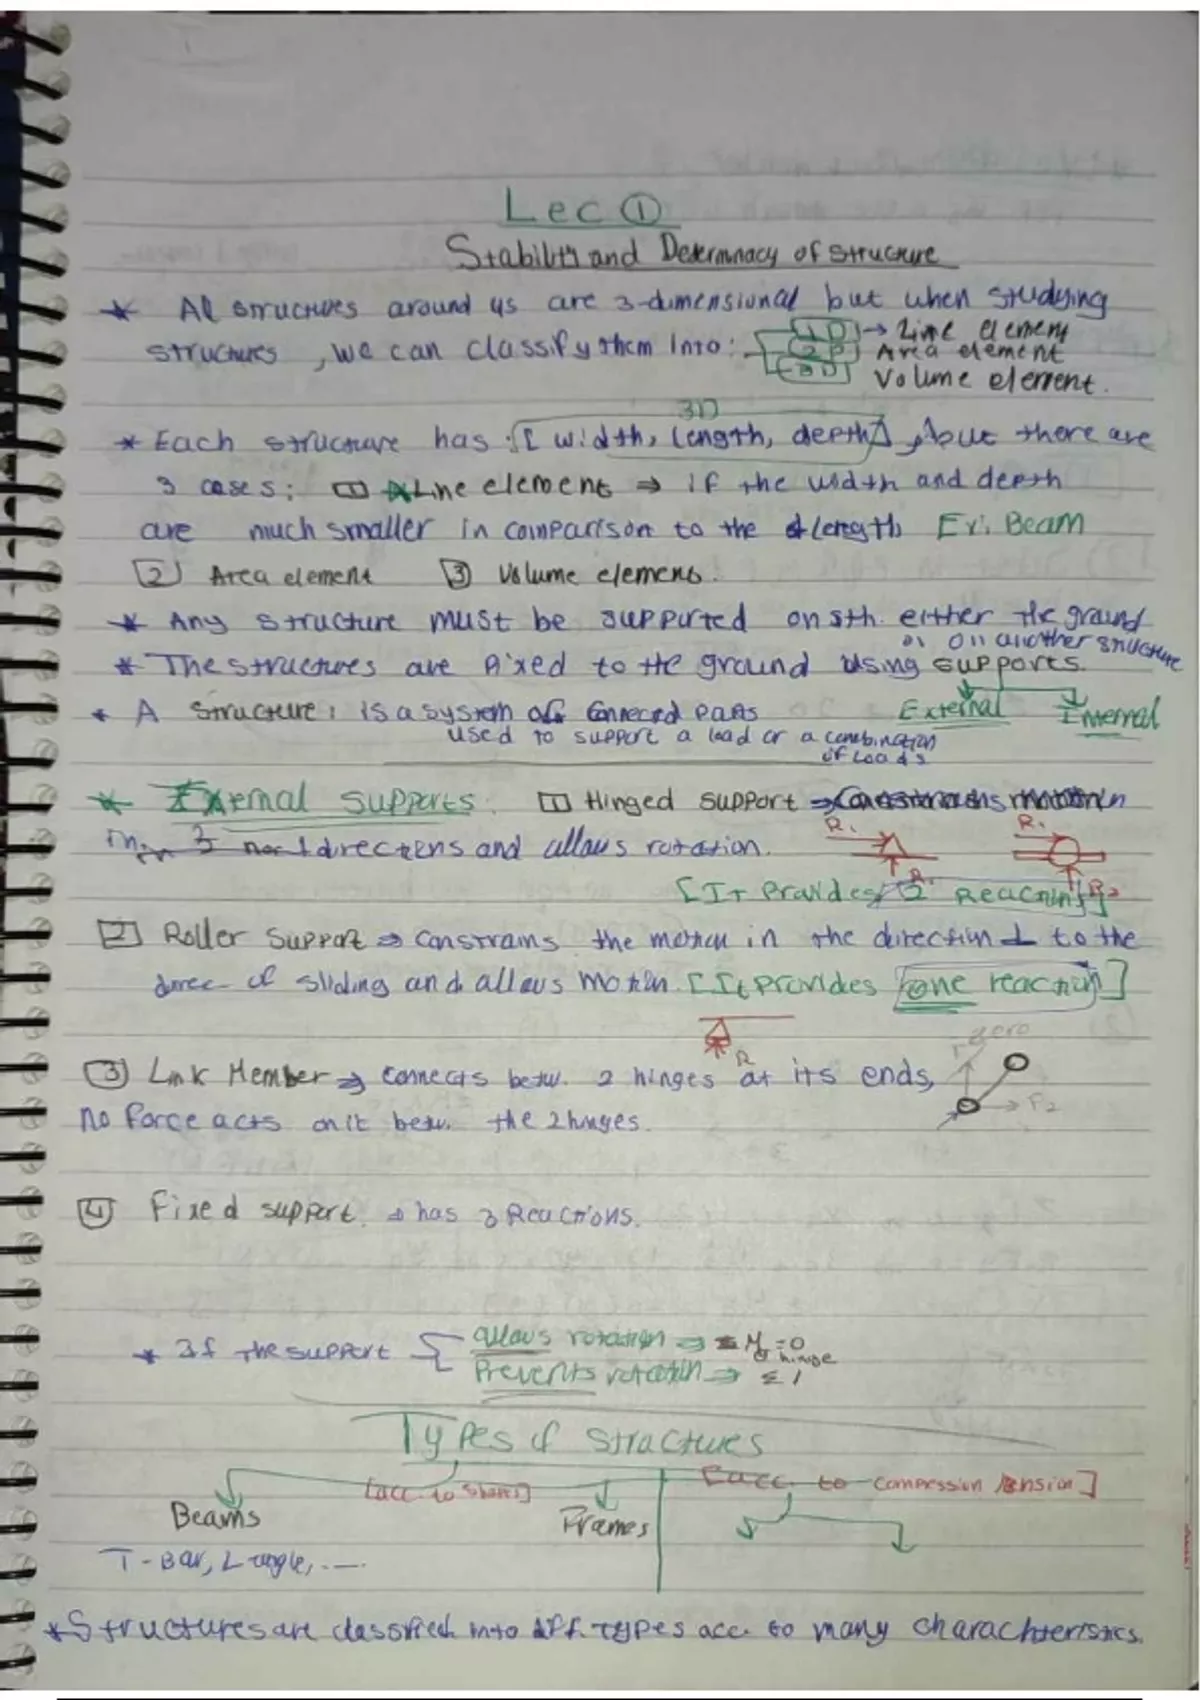 Lec ①
Stability and Determnacy of structure
* All structures around us are 3-dimensional but when studying
structures , we can classify them into: 1D → Line element
2D Area element
3D Volume element.
3D
* Each structure has : [ width, length, depth ] , but there are
3 cases: 1 Line element ⇒ if the width and depth
are much smaller in comparison to the length Ex: Beam
2 Area element 3 Volume element.
* Any structure must be supported on sth. either the ground
or on another structure
* The structures are fixed to the ground using supports.
External Internal
* A structure: is a system of connected parts
used to support a load or a combination
of loads
* External supports: 1 Hinged support ⇒ Constrains motion in
directions and allows rotation.
R₁ R₁
[It Provides 2 Reactions] R₂
2 Roller Support ⇒ constrains the motion in the direction ⊥ to the
direc- of sliding and allows motion. [It provides one reaction]
R
zero
3 Link Member ⇒ connects betw. 2 hinges at its ends,
F₂
no force acts on it betw. the 2 hinges.
4 Fixed support. ⇒ has 3 Reactions.
* If the support allows rotation ⇒ M = 0
@ hinge
Prevents rotation ⇒
Types of structures
[acc. to shapes] [acc. to compression tension]
Beams Frames
T-Bar, L-angle, ....
* Structures are classified into diff. types acc. to many charachteristics.